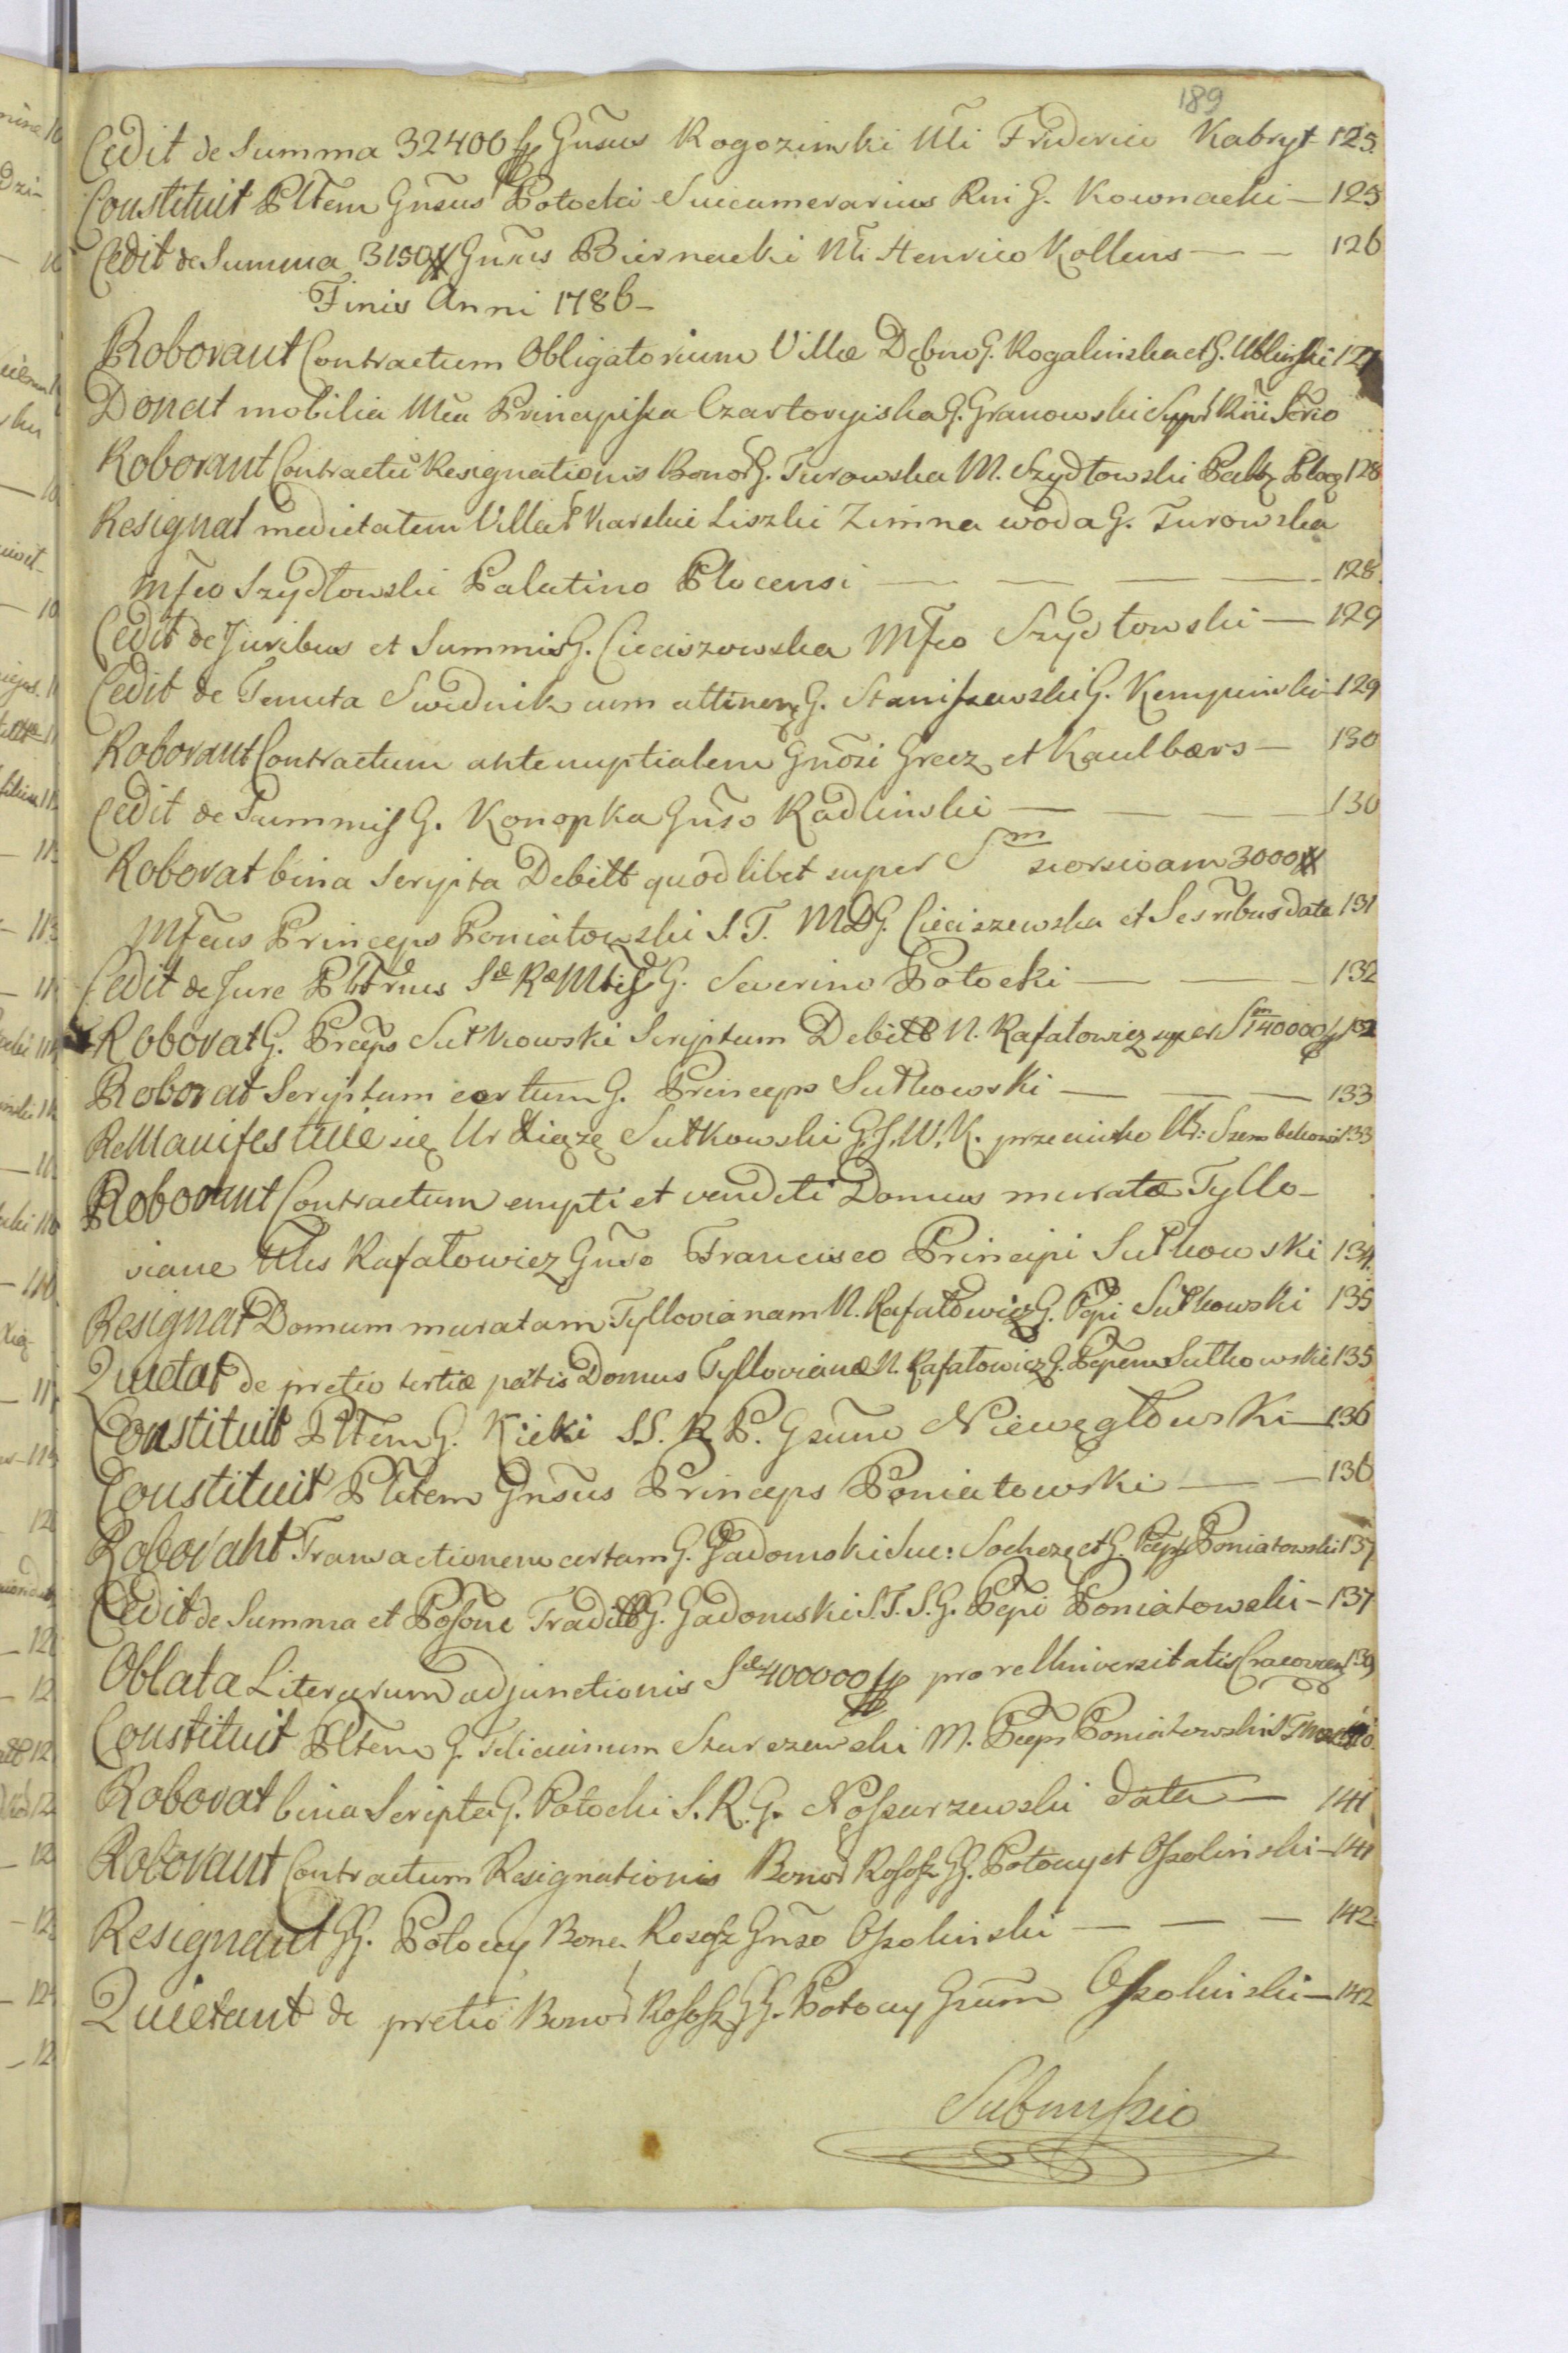 189
Cedit de Summa 32400 fp Gnsus Rogozinski Nli Friderico Kabryt 125
Constituit Pltem Gnsus Potocki Succamerarius Rni G. Kownacki — 125
Cedit de Summa 3150 # Gnsus Biernacki Nli Henrico Kollens — — 126
Finis Anni 1786 –
Roborant Contractum Obligatorium Villæ Dębno G. Rogalinska et G. Ublinski 127
Donat mobilia Mca Principissa Czartoryiska G. Granowski Rni
Roborant Contractū Resignationis Bonor G. Turowska M. Szydłowski Paltz Ploc 128
Resignat medietatem Villar Karskie Liszki Zimna woda G. Turowska
Mfco Szydłowski Palatino Plocensi — — — — 128
Cedit de Juribus et Summis G. Cieciszowska Mfco Szydłowski — 129
Cedit de Tenuta Swidnik cum attinen G. Staniszewski G. Kempinski 129
Roborant Contractum antenuptialem Gnosi Grecz et Kaulbars — 130
Cedit de Summis G. Konopka Gnso Radlinski — — — 130
Roborat bina Scripta Debitt quodlibet super Sm seorsivam 3000 #
Mfcus Princeps Poniatowski S. T. M. D. G. Cieciszewska et Sesribus data 131
Cedit de Jure G. Severino Potocki — — — 132
Roborat G. Prceps Sułkowski Scriptum Debitt N. Rafałowicz super Sm 140000 fp 132
Roborat Scriptum certum G. Princeps Sułkowski — — — 133
ReManifestuie się Ur Xiążę Sułkowski G. S. W. K. przeciwko Ur: Szembekowi 133
Roborant Contractum empti et venditi Domus muratæ Tyllo-
viane Nlis Rafałowicz Gnso Francisco Principi Sułkowski 134
Resignat Domum muratam Tyllovianam N. Rafałowicz G. Ppi Sułkowski 135
Quietat de pretio tertiæ patis Domus Tyllovianæ N. Rafałowicz G. Ppem Sułkowski 135
Constituit Pltem G. Kicki S S. R P. Gsum Niewęgłowski — 136
Constituit Pltem Gnsus Princeps Poniatowski — — 136
Roborant Transactionem certam G. Gadomski Suc: Sochcz et G. Pceps Poniatowski 137
Cedit de Summa et Possone Traditt G. Gadomski S. T. S. G. Ppi Poniatowski — 137
Oblata Literarum adjunctionis Sæ 400000 fp pro re Universitatis Cracovien 139
Constituit Pltem G. Felicianum Skarczewski M. Pceps Poniatowski
Roborat bina Scripta G. Potocki S. R. G. Possarzewski data — 141
Roborant Contractum Resignationis Bonor Rossosz GG. Potocy et Ossolinski — 141
Resignant GG. Potocy Bona Rososz Gnso Ossolinski — — — 142
Quietant de pretio Bonor Rossosz GG. Potocy Gsum Ossolinski — 142
Submissio